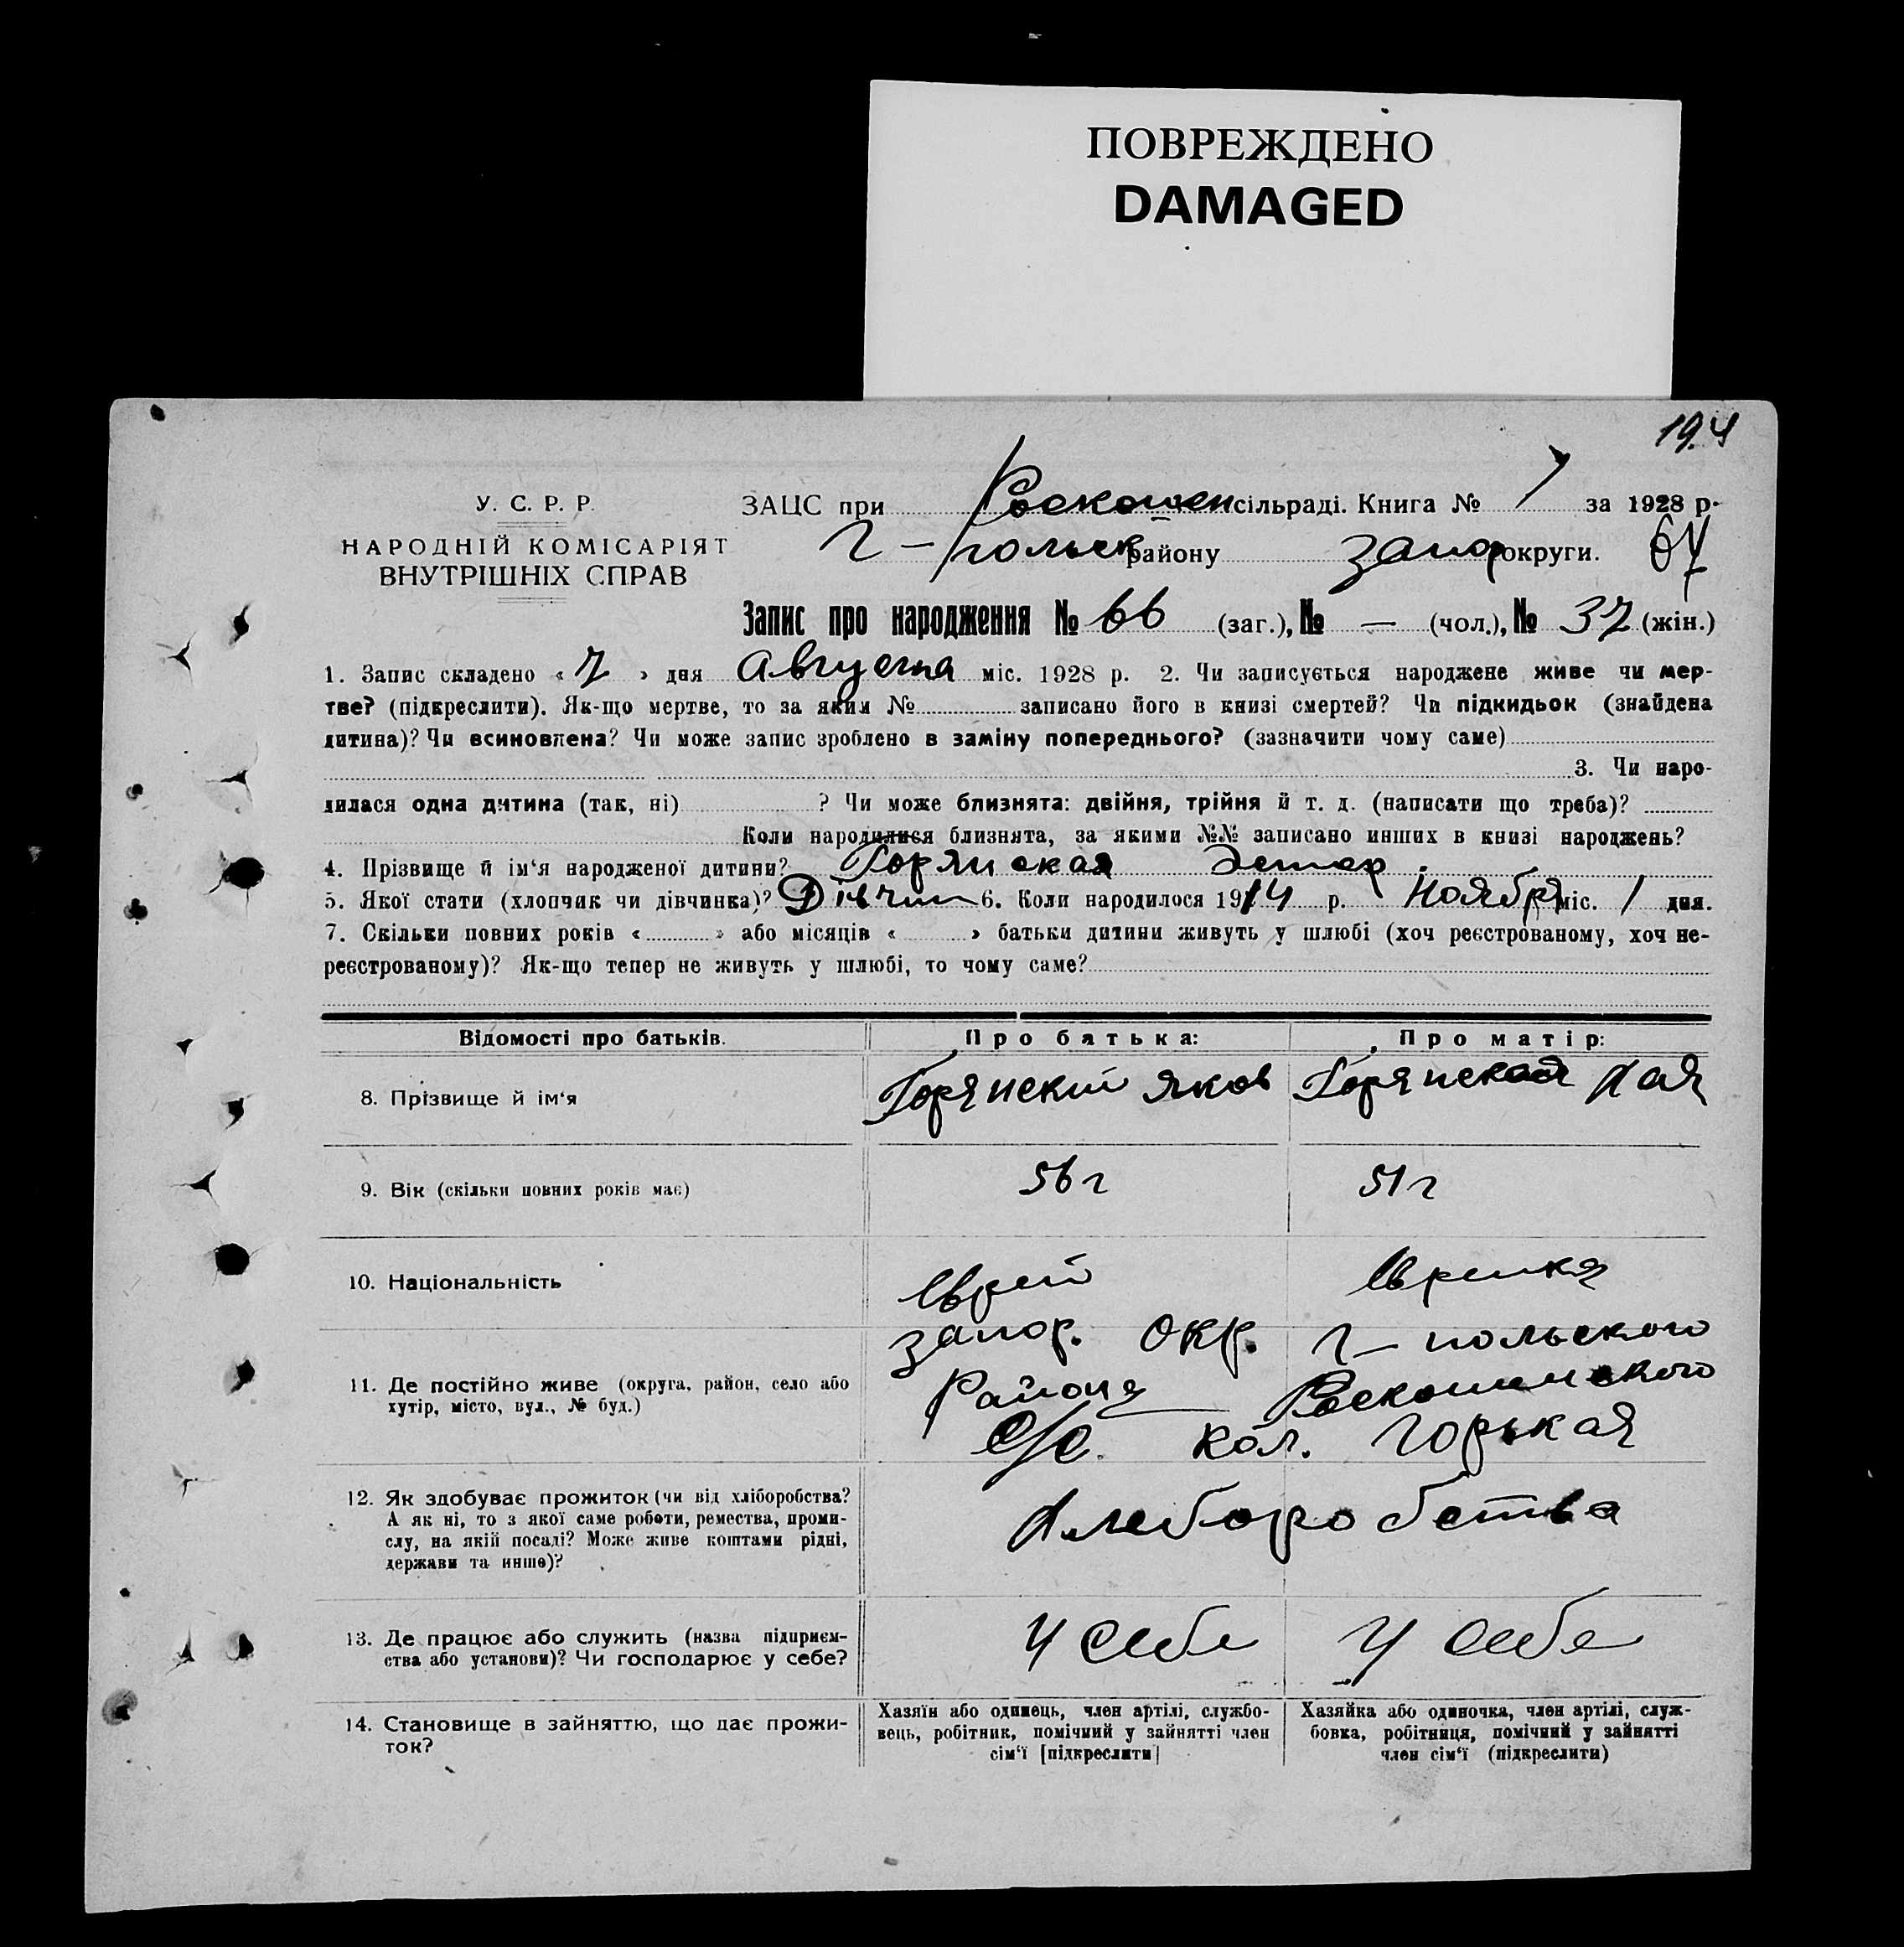 ПОВРЕЖДЕНО
DAMAGED
19.4
У. С. Р. Р.
НАРОДНІЙ КОМІСАРІЯТ
ВНУТРІШНІХ СПРАВ
ЗАЦС при Роскошен сільраді. Книга № 1 за 1928 р.
Г-польск району запор округи. 67
Запис про народження № 66 (заг.), № — (чол.), № 37 (жін.)
1. Запис складено « 7 » дня Августа міс. 1928 р. 2. Чи записується народжене живе чи мер-
тве? (підкреслити). Як-що мертве, то за яким № записано його в книзі смертей? Чи підкидьок (знайдена
дитина)? Чи всиновлена? Чи може запис зроблено в заміну попереднього? (зазначити чому саме)
3. Чи наро-
дилася одна дитина (так, ні) ? Чи може близнята: двійня, трійня й т. д. (написати що треба)?
Коли народилися близнята, за якими №№ записано инших в книзі народжень?
4. Прізвище й ім‘я народженої дитини? Горянская Эстер
5. Якої стати (хлопчик чи дівчинка)? Дівчин 6. Коли народилося 1914 р. Ноября міс. 1 дня.
7. Скільки повних років « » або місяців « » батьки дитини живуть у шлюбі (хоч реєстрованому, хоч не-
реєстрованому)? Як-що тепер не живуть у шлюбі, то чому саме?
Відомості про батьків. Про батька: Про матір:
8. Прізвище й ім‘я Горянский Яков Горянская Хая
9. Вік (скільки повних років має) 56 г 51 г
10. Національність Еврей Еврейка
запор. окр. Г-польского
11. Де постійно живе (округа, район, село або Района Роскошинского
хутір, місто, вул., № буд.)
С/С. кол. Горькая
12. Як здобуває прожиток (чи від хліборобства?
А як ні, то з якої саме роботи, ремества, проми-
слу, на якій посаді? Може живе коштами рідні,
держави та инше)?
Хлеборобства
13. Де працює або служить (назва підприєм-
ства або установи)? Чи господарює у себе?
У себе У себе
14. Становище в зайняттю, що дає прожи-
ток?
Хазяїн або одинець, член артілі, службо-
вець, робітник, помічний у зайнятті член
сім‘ї [підкреслити]
Хазяйка або одиночка, член артілі, служ-
бовка, робітниця, помічний у зайнятті
член сім‘ї (підкреслити)